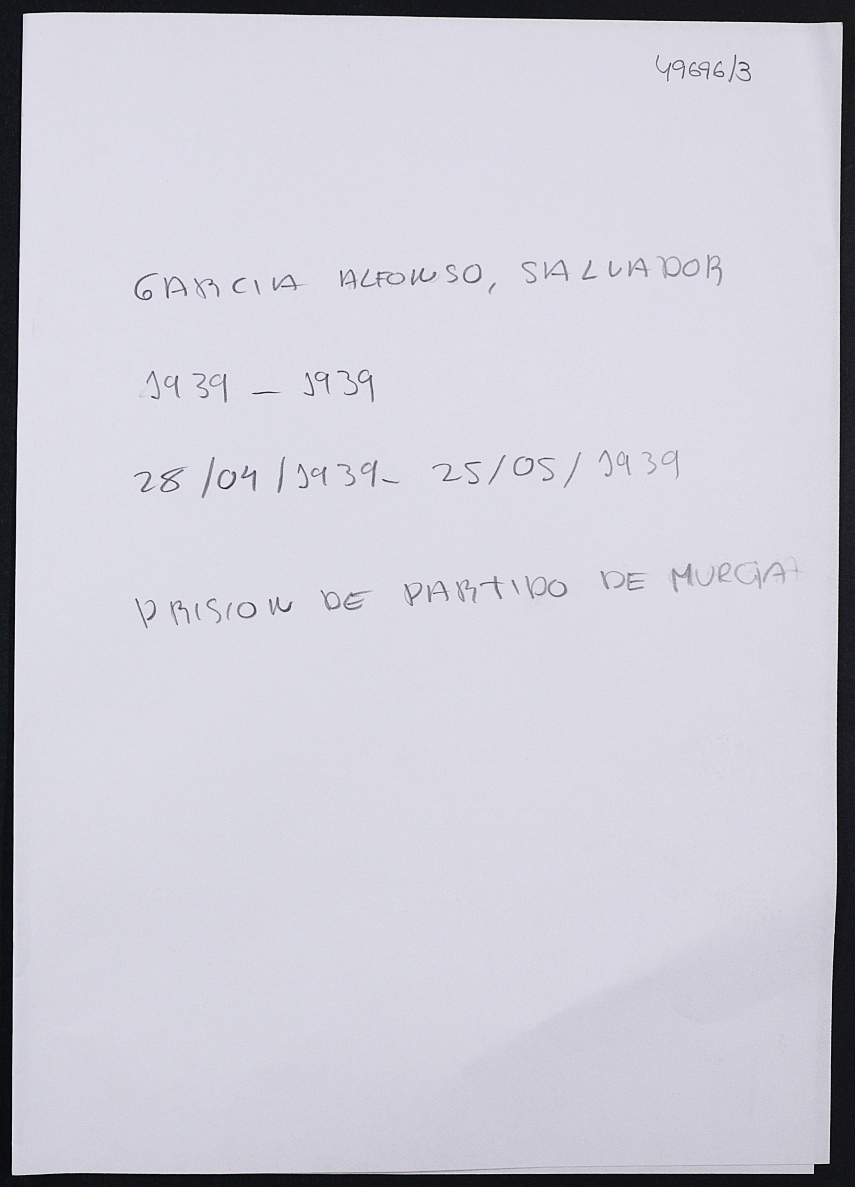 49696/3
GARCIA ALFONSO, SALVADOR
1939 - 1939
28/04/1939- 25/05/1939
PRISION DE PARTIDO DE MURCIA